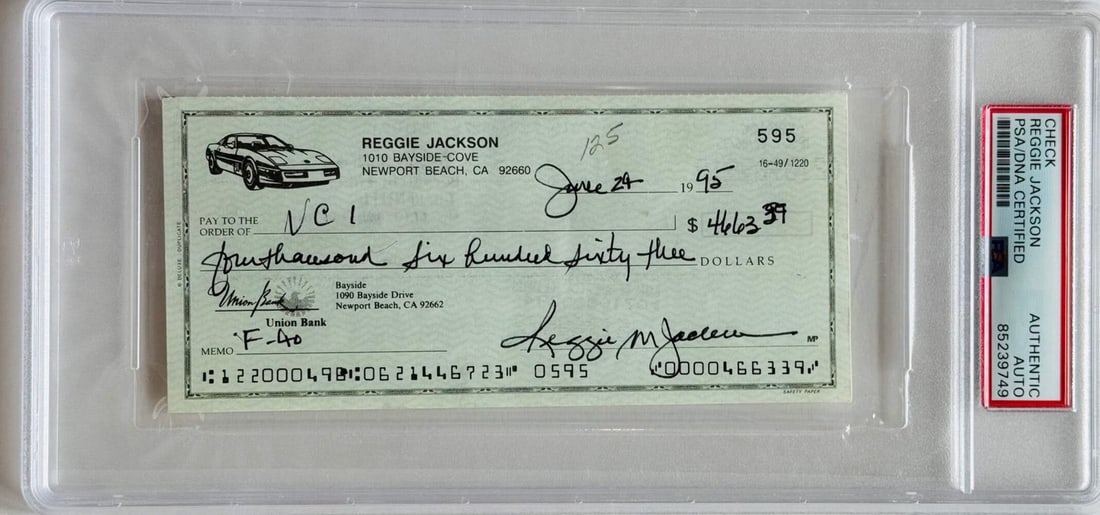 REGGIE JACKSON
1010 BAYSIDE COVE
NEWPORT BEACH, CA 92660
125
595
16-49/1220
June 24 1995
PAY TO THE
ORDER OF NCI $ 4663 39
four thousand six hundred sixty three DOLLARS
Union Bank
Bayside
1090 Bayside Drive
Newport Beach, CA 92662
Union Bank
MEMO F-40
Reggie M Jackson
MP
122000498 0621446723 0595 0000466339
SAFETY PAPER
© DELUXE DUPLICATE
CHECK
REGGIE JACKSON
PSA/DNA CERTIFIED
PSA
AUTHENTIC
AUTO
85239749